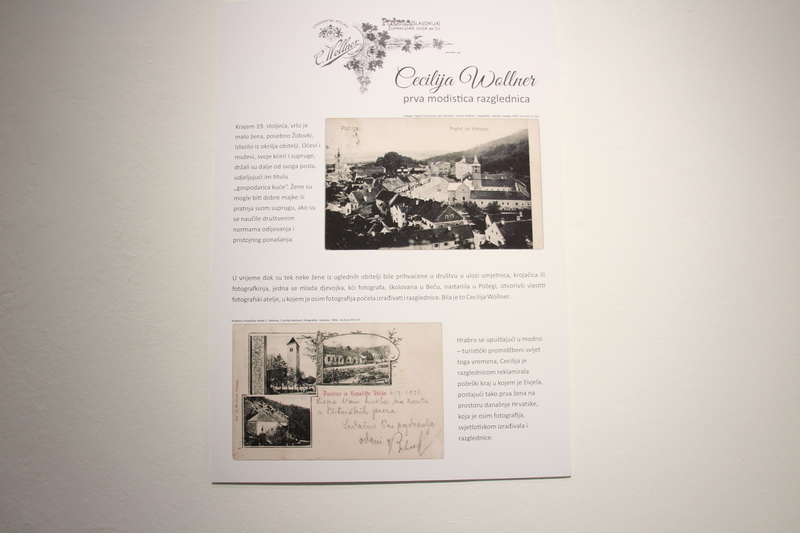 C. Wollner
Cecilija Wollner
prva modistica razglednica
Krajem 19. stoljeća, vrlo je
malo žena, posebno Židovki,
izlazilo iz okrilja obitelji. Očevi i
muževi, svoje kćeri i supruge,
držali su dalje od svoga posla,
udjeljujući im titulu
„gospodarica kuće“. Žene su
mogle biti dobre majke ili
pratnja svom suprugu, ako su
se naučile društvenim
normama odijevanja i
pristojnog ponašanja.
Požega.
U vrijeme dok su tek neke žene iz uglednih obitelji bile prihvaćene u društvu u ulozi umjetnica, krojačica ili
fotografkinja, jedna se mlada djevojka, kći fotografa, školovana u Beču, nastanila u Požegi, otvorivši vlastiti
fotografski atelje, u kojem je osim fotografija počela izrađivati i razglednice. Bila je to Cecilija Wollner.
Pozdrav iz Kupališta Velike
Hrabro se upuštajući u modno
– turistički promidžbeni svijet
toga vremena, Cecilija je
razglednicom reklamirala
požeški kraj u kojem je živjela,
postajući tako prva žena na
prostoru današnje Hrvatske,
koja je osim fotografija,
svjetlotiskom izrađivala i
razglednice.